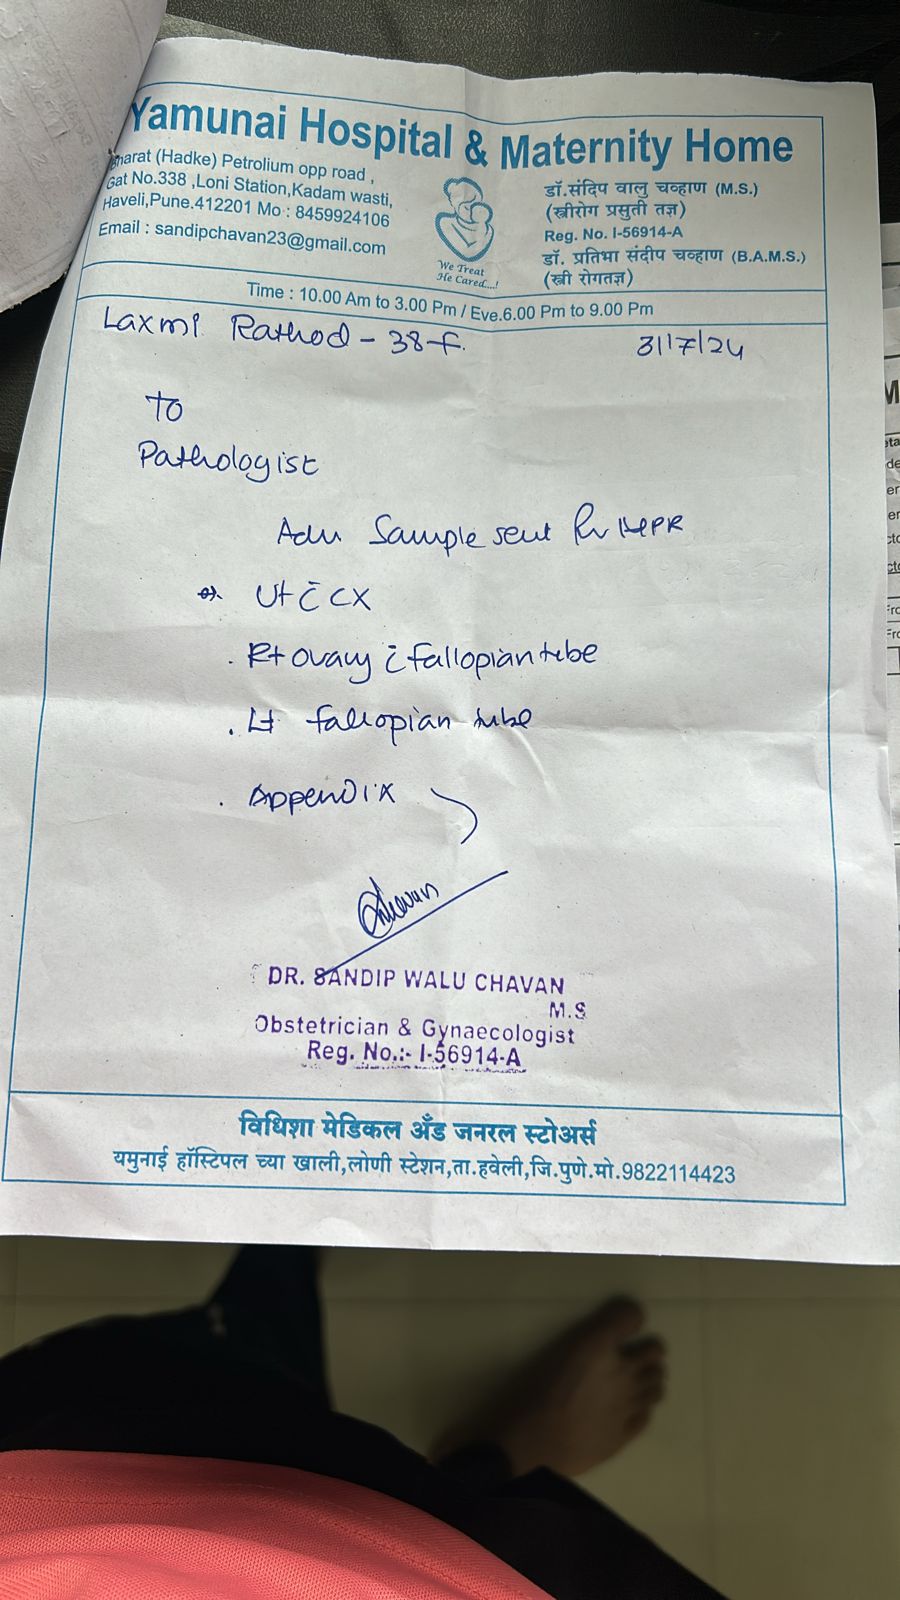 Yamunai Hospital & Maternity Home
Bharat (Hadke) Petrolium opp road ,
Gat No.338 ,Loni Station,Kadam wasti,
Haveli,Pune.412201 Mo : 8459924106
Email : sandipchavan23@gmail.com
We Treat
He Cared....!
डॉ.संदिप वालु चव्हाण (M.S.)
(स्त्रीरोग प्रसुती तज्ञ)
Reg. No. I-56914-A
डॉ. प्रतिभा संदीप चव्हाण (B.A.M.S.)
(स्त्री रोगतज्ञ)
Time : 10.00 Am to 3.00 Pm / Eve.6.00 Pm to 9.00 Pm
Laxmi Rathod - 38 f.
31/7/24
To
Pathologist
Adv Sample sent for HPR
Ut c̄ CX
. Rt ovary c̄ fallopian tube
. Lt fallopian tube
. Appendix
Chavan
DR. SANDIP WALU CHAVAN
M.S
Obstetrician & Gynaecologist
Reg. No.:- I-56914-A
विधिशा मेडिकल अँड जनरल स्टोअर्स
यमुनाई हॉस्टिपल च्या खाली,लोणी स्टेशन,ता.हवेली,जि.पुणे.मो.9822114423